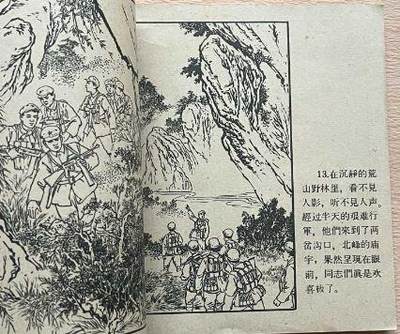 13.在沉靜的荒
山野林里，看不見
人影，听不見人声。
經过半天的艰难行
軍，他們來到了两
岔沟口，北峰的庙
宇，果然呈現在眼
前，同志們眞是欢
喜极了。